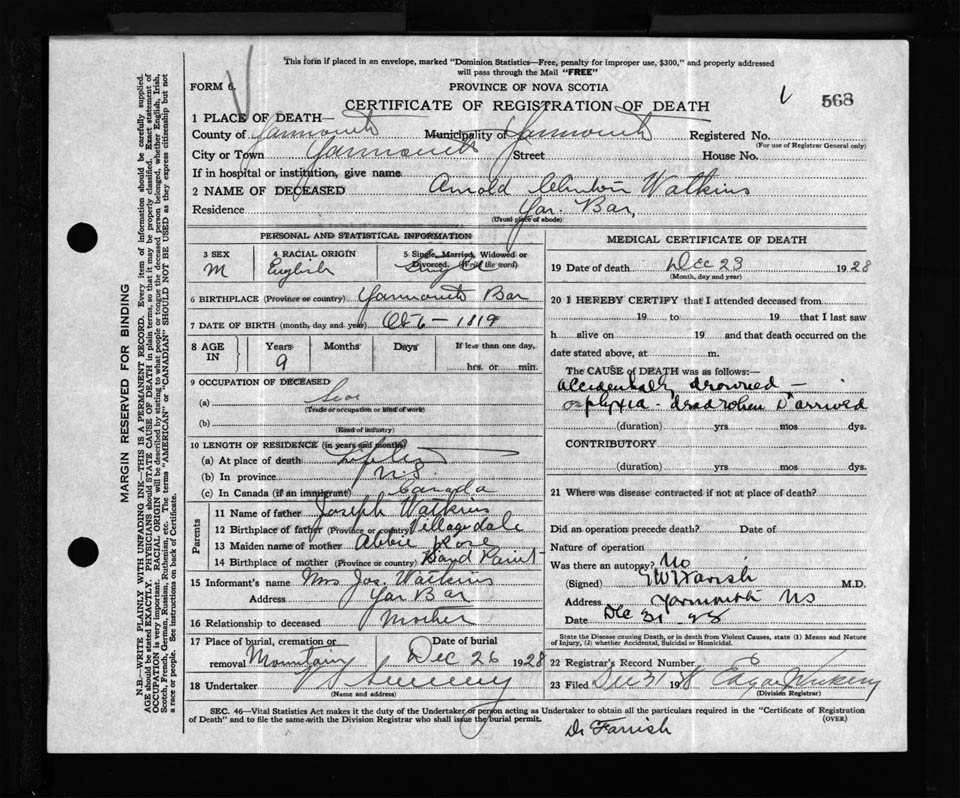 This form if placed in an envelope, marked "Dominion Statistics—Free, penalty for improper use, $300," and properly addressed
will pass through the Mail "FREE"
FORM 6.
PROVINCE OF NOVA SCOTIA
CERTIFICATE OF REGISTRATION OF DEATH
568
1 PLACE OF DEATH—
County of Yarmouth Municipality of Yarmouth Registered No.
(For use of Registrar General only)
City or Town Yarmouth Street House No.
If in hospital or institution, give name
2 NAME OF DECEASED Arnold Clinton Watkins
Residence Yar. Bar
(Usual place of abode)
PERSONAL AND STATISTICAL INFORMATION
3 SEX M
4 RACIAL ORIGIN English
5 Single, Married, Widowed or Divorced. (Write the word)
6 BIRTHPLACE (Province or country) Yarmouth Bar
7 DATE OF BIRTH (month, day and year) Oct 6 – 1819
8 AGE IN Years 9 Months Days If less than one day, hrs. or min.
9 OCCUPATION OF DECEASED
(a)
(Trade or occupation or kind of work)
(b)
(Kind of industry)
10 LENGTH OF RESIDENCE (in years and months)
(a) At place of death
(b) In province N.S
(c) In Canada (if an immigrant) Canada
Parents
11 Name of father Joseph Watkins
12 Birthplace of father (Province or country) Villagedale
13 Maiden name of mother Abbie Rose
14 Birthplace of mother (Province or country)
15 Informant's name Mrs Jos. Watkins
Address Yar Bar
16 Relationship to deceased Mother
17 Place of burial, cremation or removal Mountain Date of burial Dec 26 1928
18 Undertaker Sweeny
(Name and address)
MEDICAL CERTIFICATE OF DEATH
19 Date of death Dec 23 1928
(Month, day and year)
20 I HEREBY CERTIFY that I attended deceased from
19 to 19 that I last saw
h alive on 19 and that death occurred on the
date stated above, at m.
The CAUSE of DEATH was as follows:—
accidentally drowned –
asphyxia - dead when Dr arrived
(duration) yrs mos dys.
CONTRIBUTORY
(duration) yrs mos dys.
21 Where was disease contracted if not at place of death?
Did an operation precede death? Date of
Nature of operation
Was there an autopsy? No
(Signed) Farish M.D.
Address Yarmouth NS
Date Dec 31 - 28
State the Disease causing Death, or in death from Violent Causes, state (1) Means and Nature
of Injury, (2) whether Accidental, Suicidal or Homicidal.
22 Registrar's Record Number 6
23 Filed Dec 31 1928 Edgar
(Division Registrar)
SEC. 46—Vital Statistics Act makes it the duty of the Undertaker or person acting as Undertaker to obtain all the particulars required in the "Certificate of Registration
of Death" and to file the same with the Division Registrar who shall issue the burial permit. (OVER)
Dr Farrish
MARGIN RESERVED FOR BINDING
N.B.—WRITE PLAINLY WITH UNFADING INK—THIS IS A PERMANENT RECORD. Every item of information should be carefully supplied.
AGE should be stated EXACTLY. PHYSICIANS should STATE CAUSE OF DEATH in plain terms, so that it may be properly classified. Exact statement of
OCCUPATION is very important. RACIAL ORIGIN will be described by stating to what people or tongue the deceased person belonged, whether English, Irish,
Scotch, French, German, Russian, Ruthenian, etc. The terms "AMERICAN" or "CANADIAN" SHOULD NOT BE USED as they express citizenship but not
a race or people. See instructions on back of Certificate.